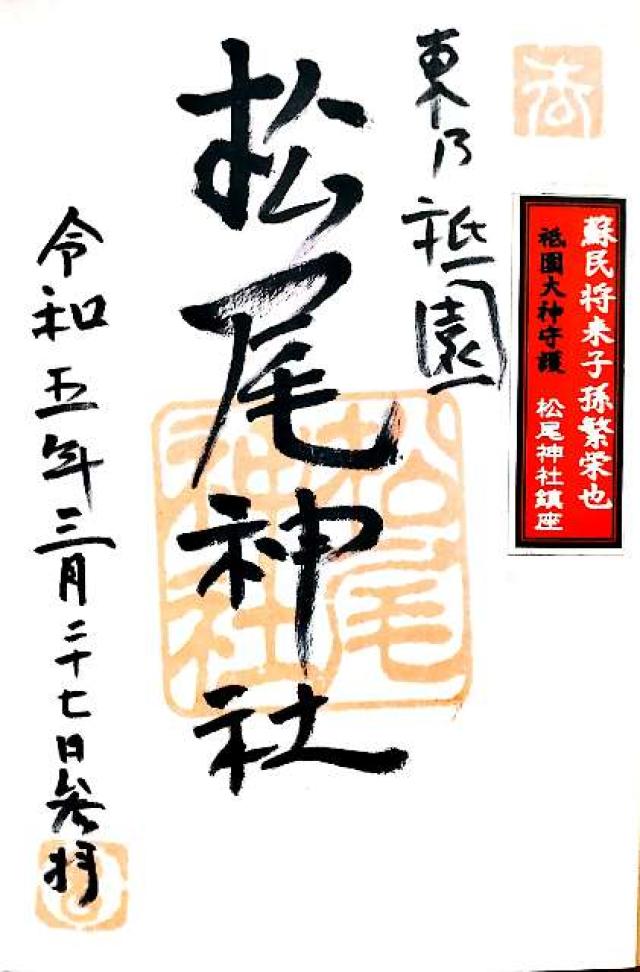 蘇民将来子孫繁栄也
祇園大神守護
松尾神社鎮座
東乃祇園
松尾神社
松尾
神社
令和五年三月二十七日参拝